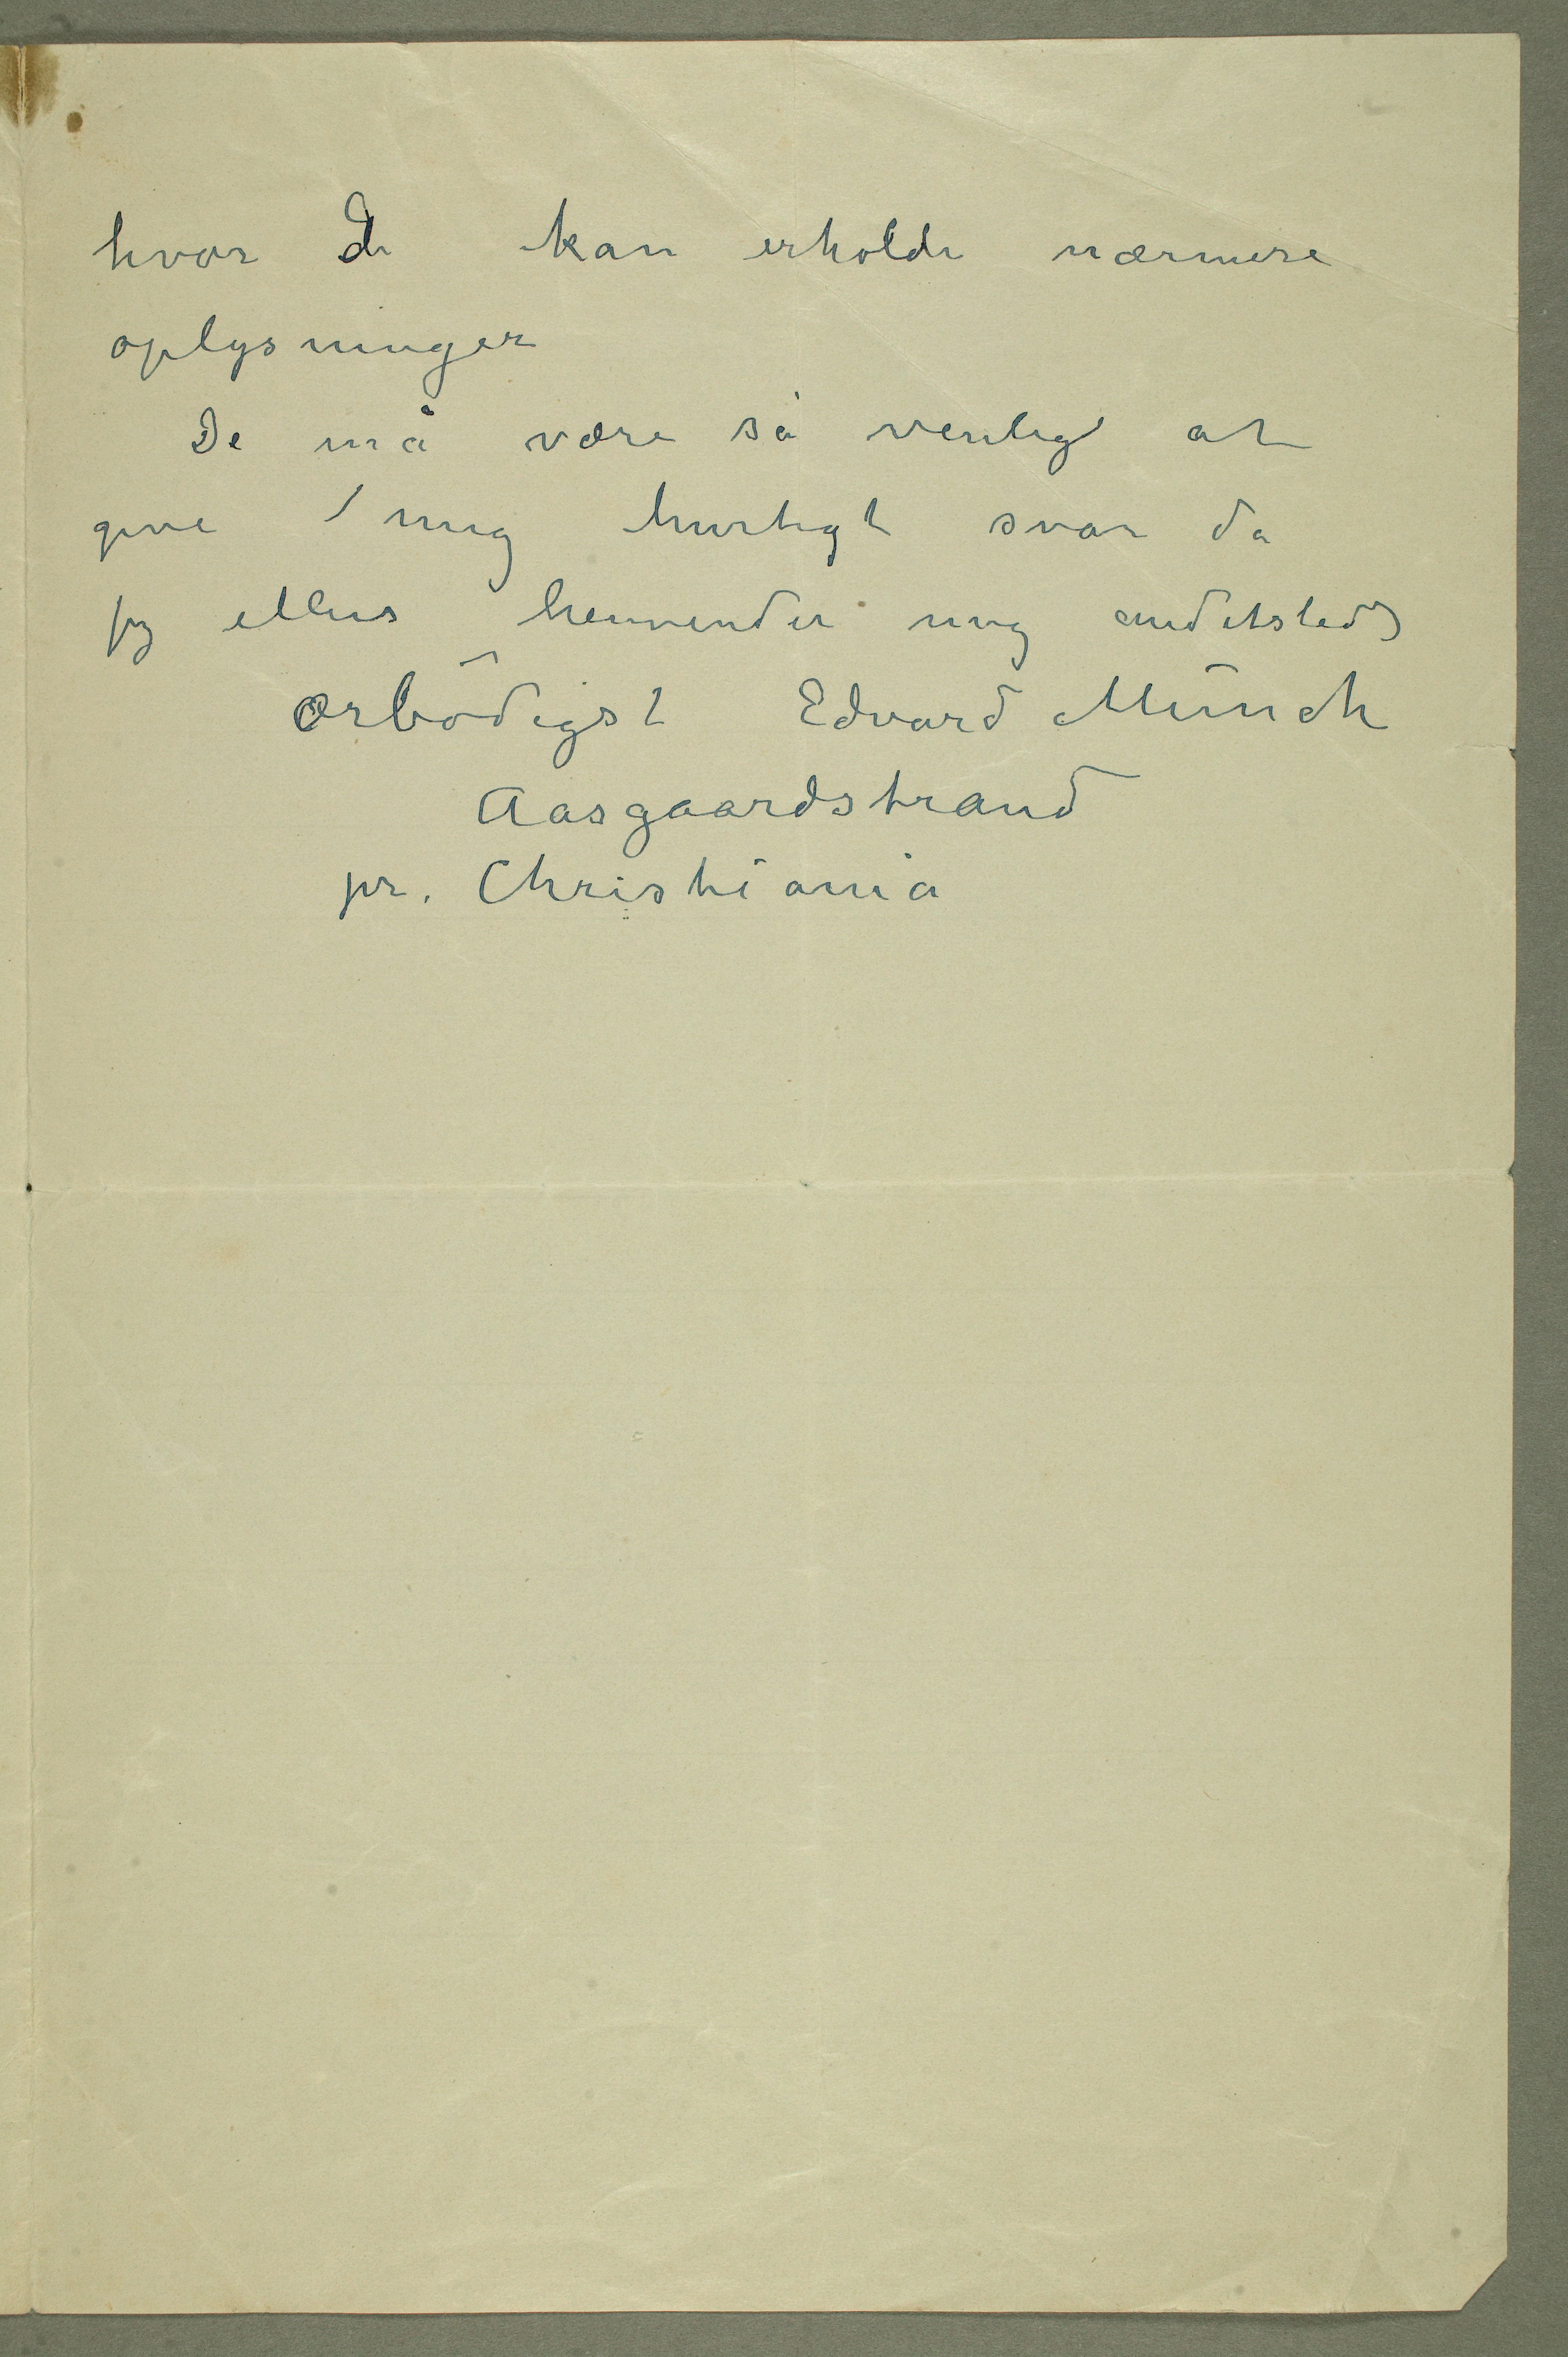 hvor De kan erholde nærmere
oplysninger
De må være så venlig at
give mig hurtigt svar da
jeg ellers henvender mig andetsteds
ærbödigst Edvard Munch
Aasgaardstrand
pr. Christiania